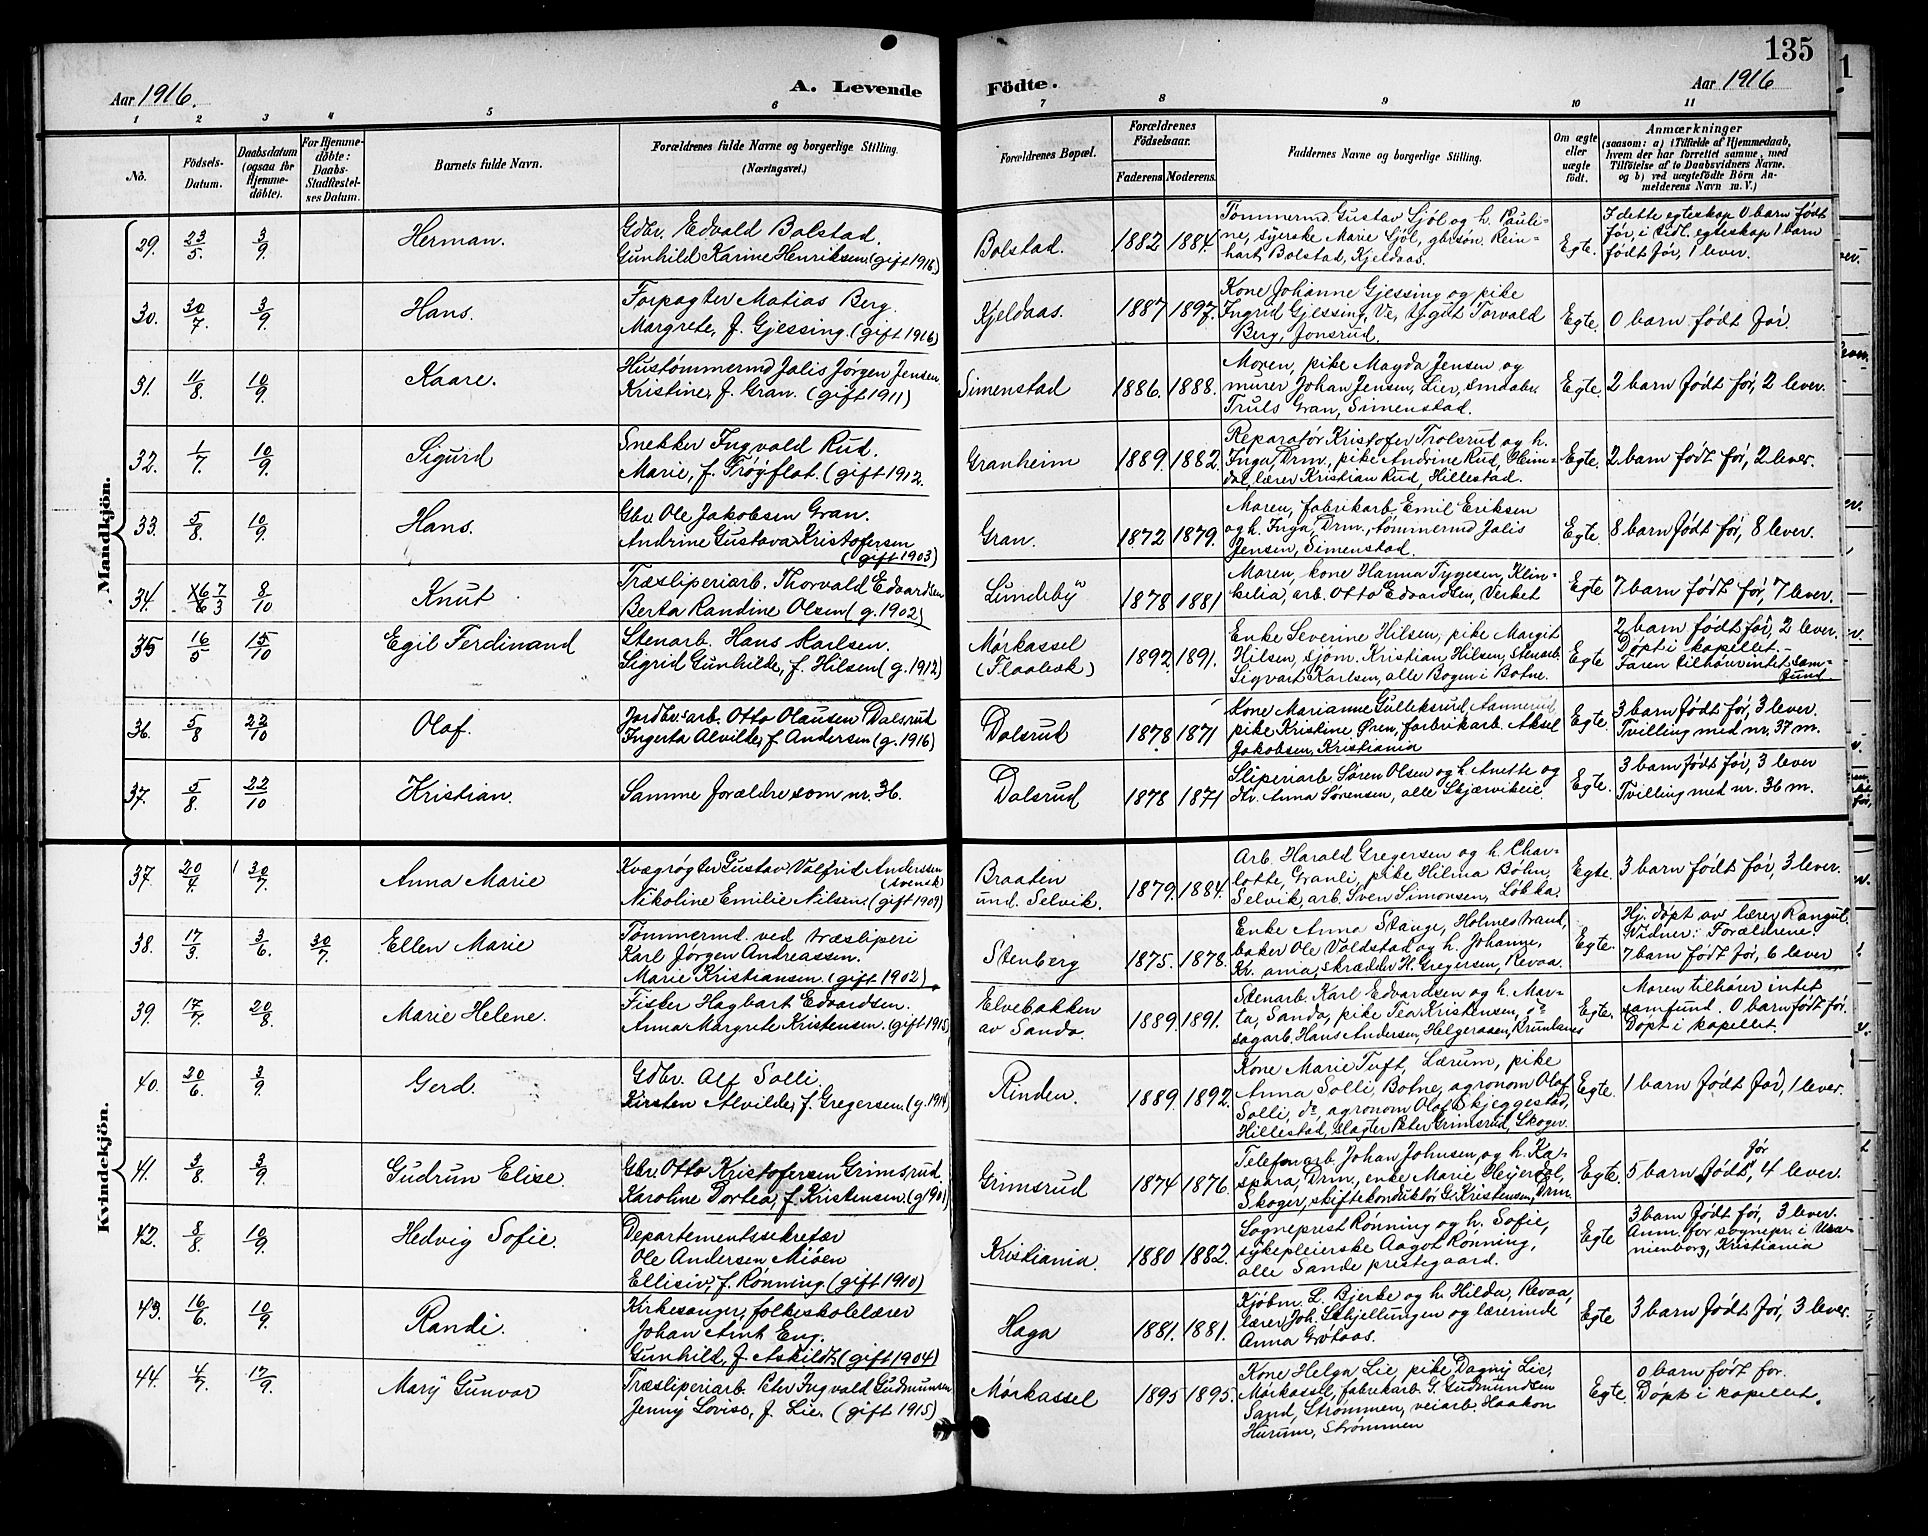 135
Aar 1916.
A. Levende
Födte.
Aar 1916
1 2 3 4 5 6 7 8 9 10 11
No.
Födsels-Datum.
Daabsdatum (ogsaa for Hjemmedöbte).
For Hjemmedöbte: Daabs-Stadfæstelses Datum.
Barnets fulde Navn.
Forældrenes fulde Navne og borgerlige Stilling.
(Næringsvei.)
Forældrenes Bopæl.
Forældrenes Födselsaar.
Faderens. Moderens.
Faddernes Navne og borgerlige Stilling.
Om ægte eller uægte födt.
Anmærkninger
(saasom: a) i Tilfælde af Hjemmedaab, hvem der har forrettet samme, med Tilföielse af to Daabsvidners Navne, og b) ved uægtefödte Börn Anmelderens Navn m. V.)
Mandkjön.
29. 23/5 3/9 Herman.
Gdbr. Edvald Bolstad.
Gunhild Karine Henriksen. (gift 1916)
Bolstad. 1882 1884.
Tømmermd Gustav Sjøl og h. Pauli-
ne, syerske Marie Sjøl, gbrsøn. Rein-
hart Bolstad, Kjeldaas.
Egte.
I dette egteskap 0 barn født
før, i tidl. egteskap 1 barn
født før, 1 lever.
30. 30/7. 3/9 Hans.
Forpagter Matias Berg.
Margrete, f. Gjessing. (gift 1916)
Kjeldaas. 1887 1897.
Kone Johanne Gjessing og pike
Ingrid Gjessing, Ve, ygut Torvald
Berg, Jonsrud.
Egte. 0 barn født før.
31. 11/8. 10/9 Kaare.
Hustømmermd Jalis Jørgen Jensen
Kristine, f. Gran. (gift 1911)
Simenstad 1886. 1888.
Moren, pike Magda Jensen og
murer Johan Jensen, Lier, smaabr.
Truls Gran, Simenstad.
Egte. 2 barn født før, 2 lever.
32. 1/7. 10/9 Sigurd
Snekker Ingvald Rud.
Marie, f. Trøyflat. (gift 1912.
Granheim 1889. 1882.
Reparatør Kristofer Trolsrud og h.
Inga, Drm., pike Andrine Rud, Heim-
dal, lærer Kristian Rud, Hillestad.
Egte. 2 barn født før, 2 lever.
33. 5/8. 10/9. Hans.
Gbr. Ole Jakobsen Gran.
Andrine Gustava Kristofersen
(gift 1903)
Gran. 1872 1879.
Moren, fabrikarb. Emil Eriksen
og h. Inga, Drm., tømmermd Jalis
Jensen, Simenstad.
Egte. 8 barn født før, 8 lever.
34. 8/10 Knut
Træsliperiarb. Thorvald Edvardsen
Berta Randine Olsen (g. 1902)
Lundeby 1878 1881
Moren, kone Hanna Tygesen, Klin-
kelia, arb. Otto Edvardsen, Verket
Egte 7 barn født før, 7 lever.
35 16/5 15/10 Egil Ferdinand
Stenarb. Hans Karlsen.
Sigrid Gunhilde, f. Hilsen (g. 1912)
Mørkassel
(Flaalæk)
1892. 1891.
Enke Severine Hilsen, pike Margit
Hilsen, sjøm. Kristian Hilsen, stenarb.
Sigvart Karlsen, alle Bogen i Botne.
Egte
2 barn født før, 2 lever.
Døpt i kapellet.
Faren tilhører intet sam-
fund
36. 5/8 22/10 Olaf.
Jordbr.arb. Otto Olausen Dalsrud
Ingerta Alvilde, f. Andersen (g. 1916)
Dalsrud 1878 1871
Kone Marianne Gulleksrud, Aannerud
pike Kristine Øren, fabrikarb. Aksel
Jakobsen, Kristiania
Egte. 3 barn født før, 3 lever.
Tvilling med nr. 37 m.
37. 5/8. 22/10 Kristian.
Samme forældre som nr. 36.
Dalsrud 1878 1871
Sliperiarb. Søren Olsen og h. Anette og
dtr. Anna Sørensen, alle Skjærvikeie.
Egte. 3 barn født før, 3 lever
Tvilling med nr. 36 m.
Kvindekjön.
37. 20/4. 30/7. Anna Marie
Kvægrøgter Gustav Valfrid Anderssen
(svensk)
Nikoline Emilie Nilsen. (gift 1909)
Braaten
und. Selvik. 1879. 1884.
Arb. Harald Gregersen og h. Char-
lotte, Granli, pike Hilma Bøhn,
Selvik, arb. Sven Simonsen, Løkka.
Egte. 3 barn født før, 3 lever.
38. 17/3. 3/6. 30/7. Ellen Marie
Tømmermd. ved træsliperi
Karl Jørgen Andreassen.
Marie Kristiansen. (gift 1902)
Stenberg 1875. 1878.
Enke Anna Stange, Holmestrand,
baker Ole Valdstad og h. Johanne,
Kr.ania, skrædder H. Gregersen, Revaa.
Egte.
Hj. døpt av lærer Rangul.
Vidner: Forældrene.
7 barn født før, 6 lever
39. 17/7. 20/8. Marie Helene.
Fisker Hagbart Edvardsen.
Anna Margrete Kristensen. (gift 1915)
Elvebakken
av Sando. 1889. 1891.
Stenarb. Karl Edvardsen og h. Mar-
ta, Sando, pike Tea Kristensen, do
sagarb. Hans Andersen, Helgeraaen, Brunlanes
Egte.
Moren tilhører intet
samfund. 0 barn født før.
Døpt i kapellet.
40. 20/6. 3/9 Gerd.
Gdbr. Alf Solli.
Kirsten Alvilde, f. Gregersen. (g. 1914)
Rinden. 1889. 1892.
Kone Marie Tuft, Lærum, pike
Anna Solli, Botne, agronom Olaf
Solli, do, agronom Olaf Skjeggestad,
Hillestad, slagter Peter Grimsrud, Skoger.
Egte. 1 barn født før, 1 lever.
41. 3/8. 3/9. Gudrun Elise.
Gbr. Otto Kristofersen Grimsrud.
Karoline Dortea, f. Kristensen. (g 190)
Grimsrud 1874 1876.
Telefonarb Johan Johnsen og h. Ka-
spara, Drm., enke Marie Heyerdal,
Skoger, skiftekonduktør G. Kristensen, Drm.
Egte. 5 barn født før, 4 lever.
42. 8/8. 10/9. Hedvig Sofie.
Departementssekretær
Ole Andersen Miøen
Ellisiv, f. Rønning. (gift 1910)
Kristiania. 1880 1882.
Sogneprest Rønning og h. Sofie,
sykepleierske Aagot Rønning,
alle Sande prestegaard.
Egte
3 barn født før, 3 lever.
Anm. for sognepr. i Ura-
nienborg, Kristiania
43. 16/6. 10/9. Randi.
Kirkesanger, folkeskolelærer
Johan Arnt Eng.
Gunhild, f. Askildt. (gift 1904)
Haga 1881. 1881.
Kjøbm. L. Bjerke og h. Hilda, Revaa,
lærer Joh. Skjellungen og lærerinde
Anna Grøtaas.
Egte 3 barn født før, 3 lever.
44. 4/7. 17/9. Mary Gunvor
Træsliperiarb. Peter Ingvald Gudmunsen
Jenny Lovise, f. Lie. (gift 1915)
Mørkassel 1895 1895.
Kone Helga Lie, pike Dagny Lie,
Mørkassel, fabrikarb. G. Gudmundsen
Sand, Strømmen, veiarb. Haakon
Hurum, Strømmen
Egte. 0 barn født før.
Døpt i kapellet.